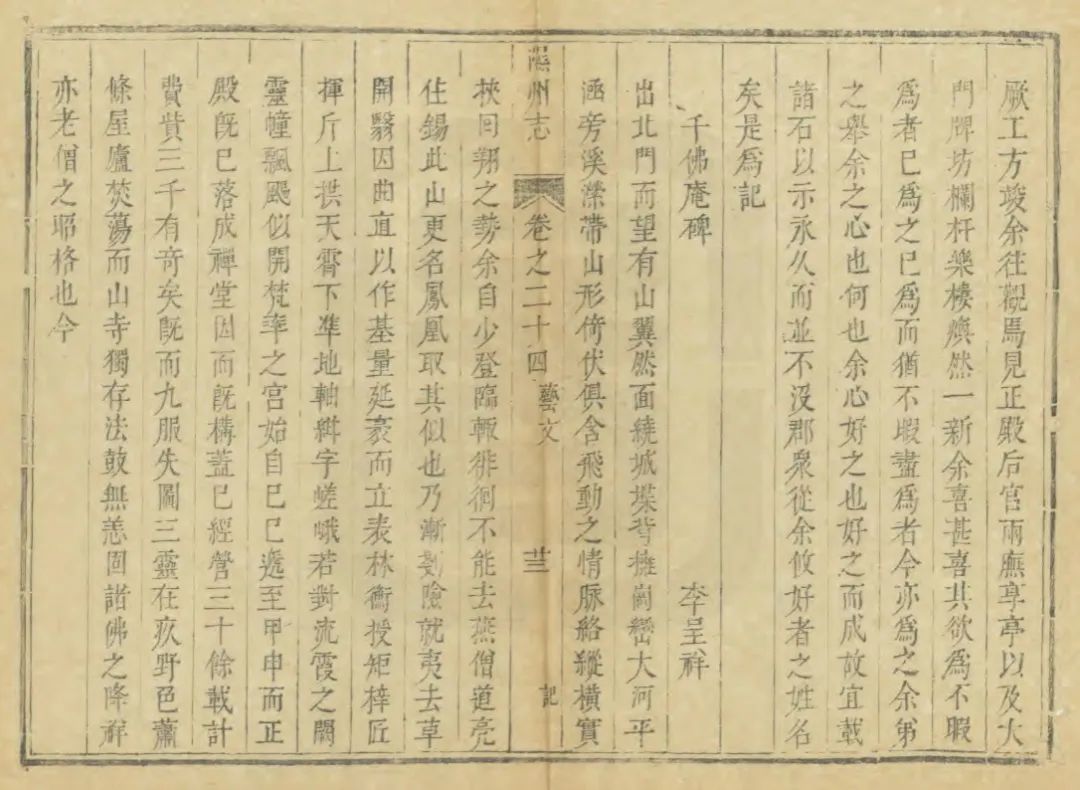 厥工方竣余往觀焉見正殿后官兩廡享亭以及大
門牌坊欄杆樂樓煥然一新余喜甚喜其欲為不暇
為者已為之已為而猶不暇盡為者今亦為之余第
之舉余之心也何也余心好之也好之而成故宜載
諸石以示永久而並不沒郡衆從余攸好者之姓名
矣是為記
千佛庵碑 李呈祥
出北門而望有山翼然面繞城堞背擁崗巒大河平
涵旁溪瀠帶山形倚伏俱含飛動之情脉絡縱橫實
濱州志 卷之二十四 藝文 三 記
挾回翔之勢余自少登臨輙徘徊不能去燕僧道亮
住錫此山更名鳳凰取其似也乃漸剗險就夷去草
開翳因曲直以作基量延袤而立表林衡授矩梓匠
揮斤上拱天霄下準地軸紺宇嵯峨若對流霞之闕
靈幢飄颺似開梵率之宮始自己巳遞至甲申而正
殿旣已落成禪堂因而旣構蓋已經營三十餘載計
費貲三千有奇矣旣而九服失圖三靈在疚野邑蕭
條屋廬焚蕩而山寺獨存法鼓無恙固諸佛之降祥
亦老僧之昭格也今